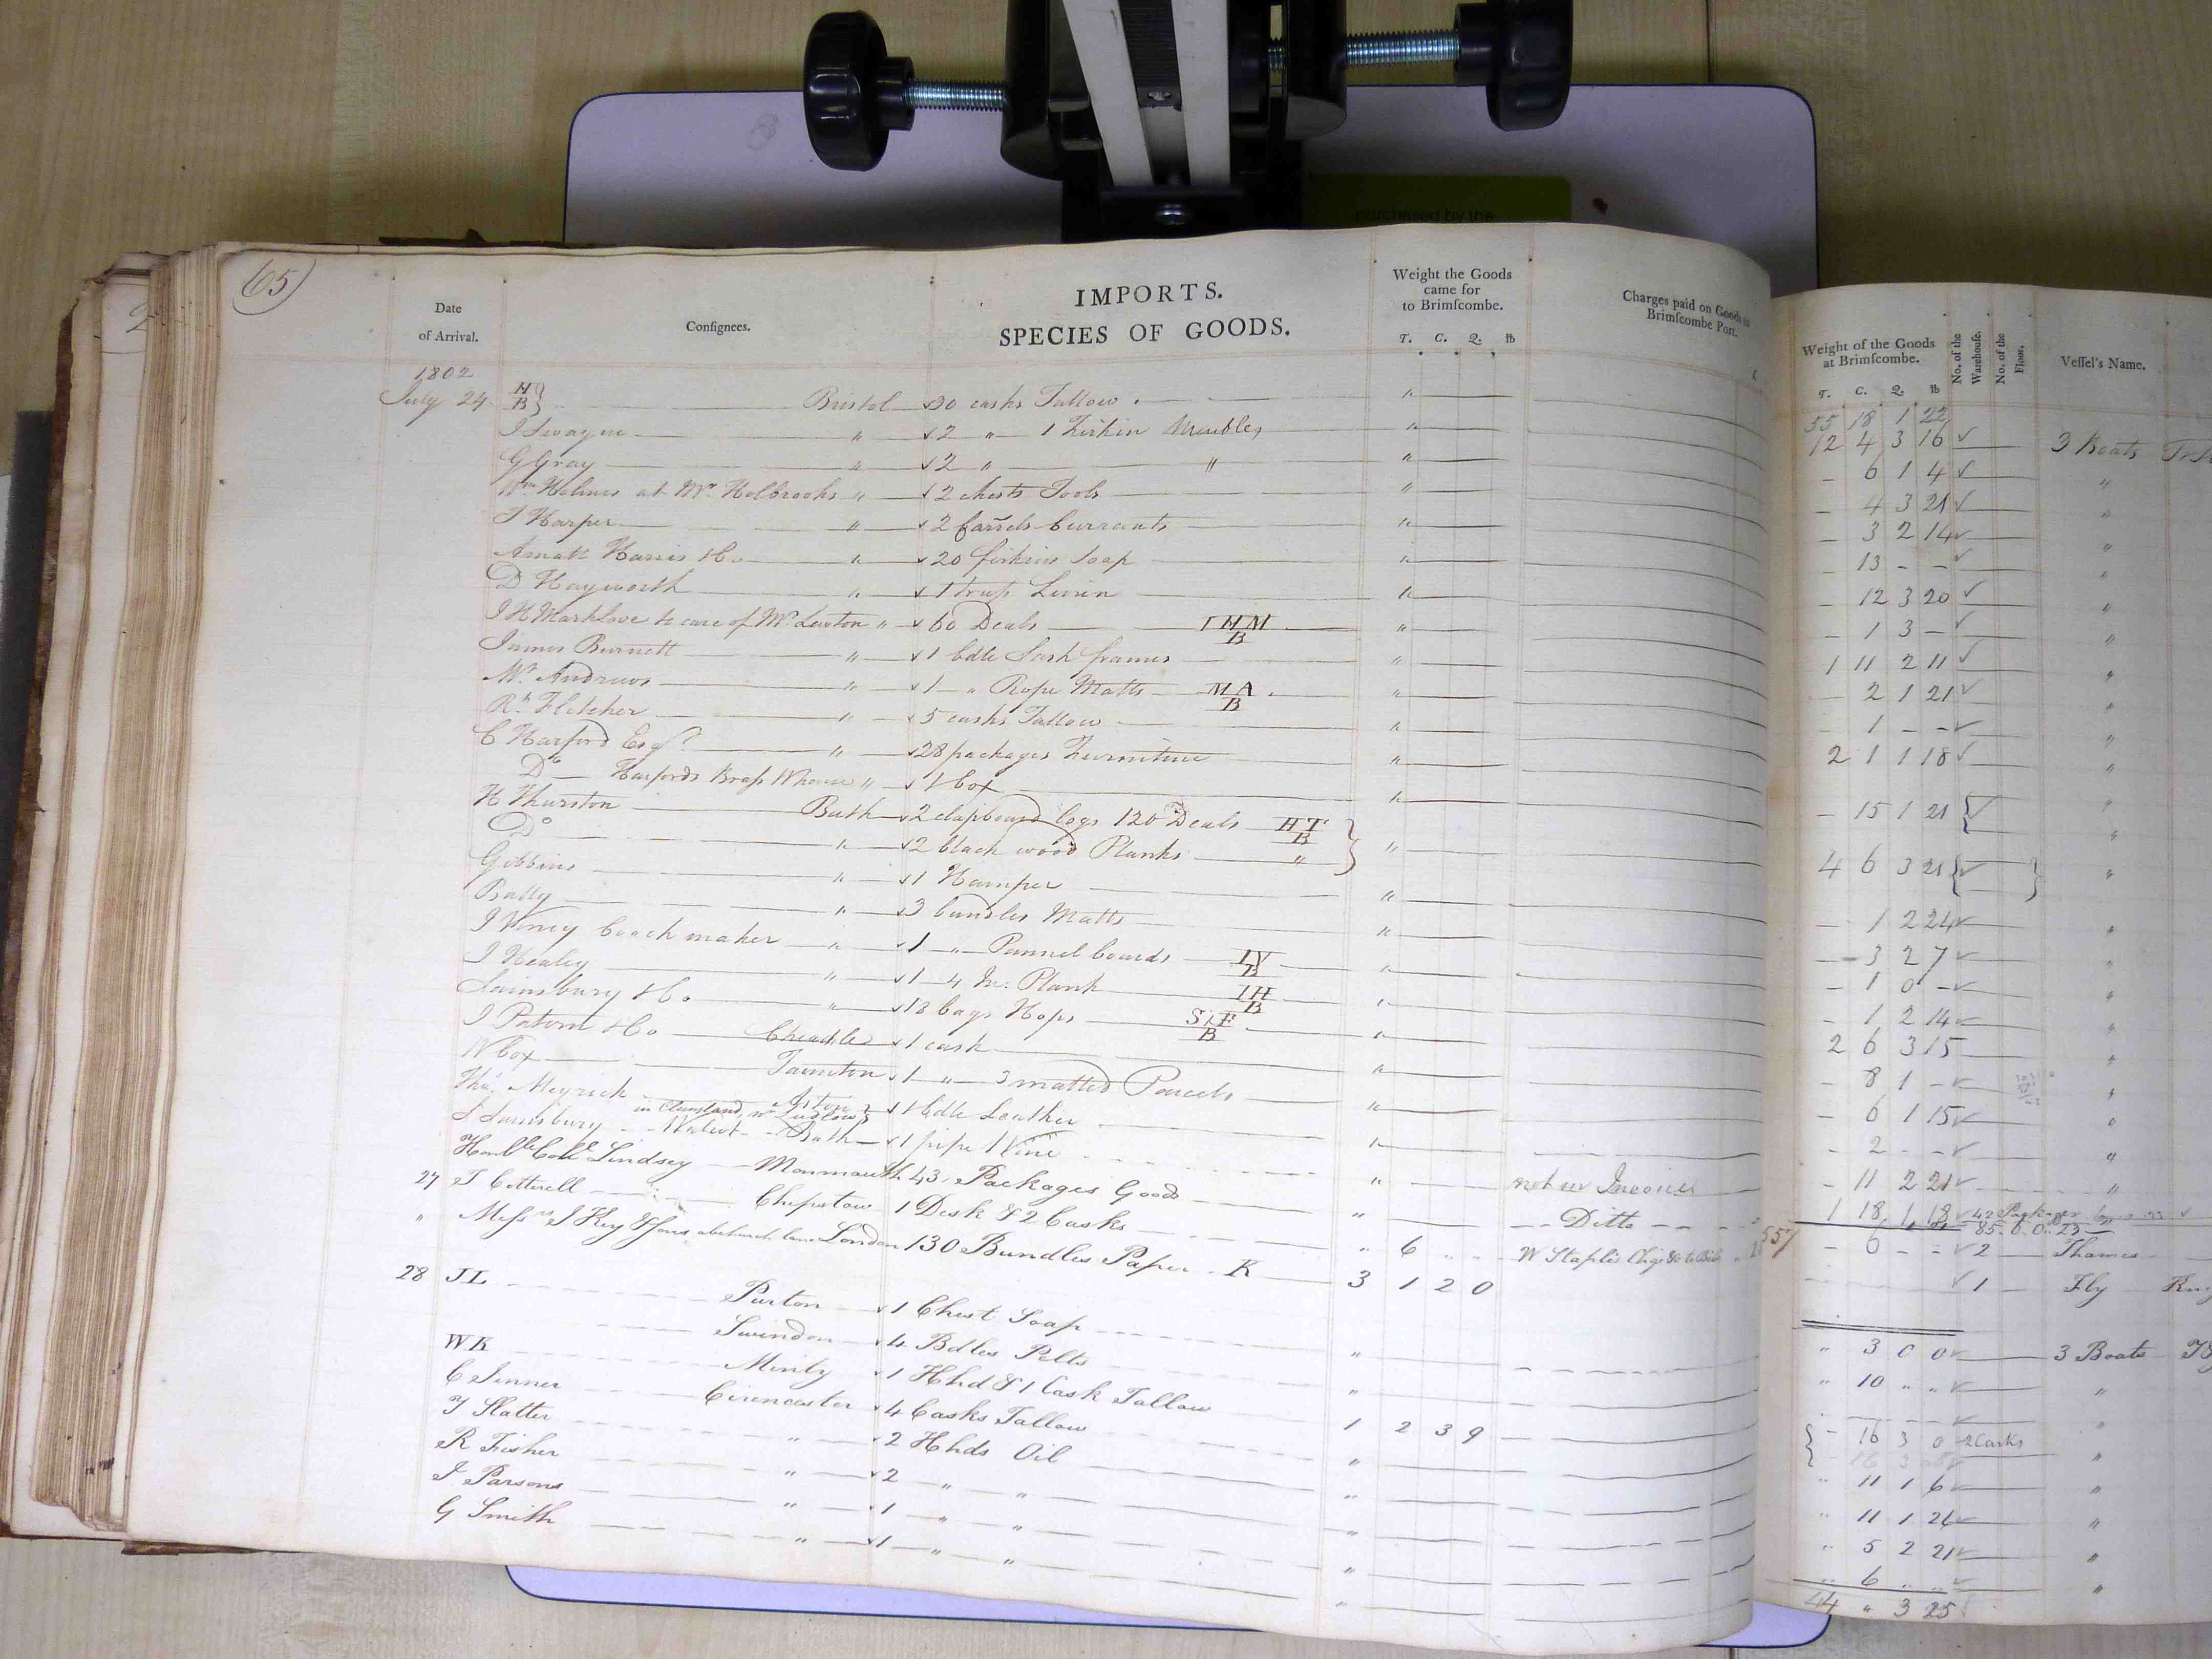 purchased by the
(65)
Date of Arrival.
Consignees.
IMPORTS.
SPECIES OF GOODS.
Weight the Goods came for to Brimscombe.
T. C. Q. lb
Charges paid on Goods to Brimscombe Port.
Weight of the Goods at Brimscombe.
T. C. Q. lb
No. of the Warehouse.
No. of the Floor.
Vessel's Name.
1802
55 18 1 22
July 24 H B } Bristol 30 casks Tallow " 12 4 3 16 3 Boats
I Swayne " 2 " 1 Firkin Marbles " - 6 1 4 "
G Gray " 2 " " " - 4 3 21 "
Wm Holmes at Mr Holbrooks " 2 chests Tools " - 3 2 14 "
J Harper " 2 barrels currants " - 13 - - "
Arnatt Harris & Co " 20 firkins Soap " - 12 3 20 "
D Hayworth " 1 truss Linin " - 1 3 - "
I H Marklove to care of Mr Lewton " 60 Deals IHM B " 1 11 2 11 "
James Burnett " 1 bdle Sash frames " - 2 1 21 "
Mr Andrews " 1 " Rope Matts MA B " - 1 - - "
Rd Fletcher " 5 casks Tallow " 2 1 1 18 "
C Harford Esqr " 28 packages Furniture " - 15 1 21 { "
Do Harfords Brass Whouse " 1 box " "
H Thurston Bath 2 clapboard logs 120 Deals HT B } " 4 6 3 21 { } "
Do " 2 black wood Planks "
Gibbins " 1 Hamper " - 1 2 24 "
Bally " 3 bundles Matts " - 3 2 7 "
I Viney Coach maker " 1 " Pannel boards IV B " - 1 0 - "
I Healey " 1 4 In. Plank IH B " - 1 2 14 "
Sainsbury & Co " 18 bags Hops B " 2 6 3 15 "
I Patern & Co Cheadle 1 cask " - 8 1 - "
W Cox Taunton 1 " 3 matted Parcels " - 6 1 15 "
Thos Meyrick Aston in Clunsland, nr Ludlow } 1 bdle Leather " - 2 - - "
S Sainsbury Walcot Bath 1 pipe Wine " - 11 2 21 "
Honble Coll Lindsey Monmouth 43 Packages Goods " not in Invoice 1 18 1 18 42 Packages
85. 0. 0. 23
27 T Cotterell Chepstow 1 Desk & 2 Casks " Ditto - 6 - - 2 Thames
" Messrs J Key & Sons abchurch lane London 130 Bundles Paper K " 6 " " W Staples 557 1 Fly
3 1 2 0
28 JL Purton 1 Chest Soap " " 3 0 0 3 Boats
Swindon 4 Bdles Pelts " " 10 " " "
WK Minty 1 Hhd & 1 Cask Tallow "
C Jenner Cirencester 4 Casks Tallow 1 2 3 9 { - 16 3 0 2 Casks "
Y Slatter " 2 Hhds Oil " " 11 1 6 "
R Fisher " 2 " " " " 11 1 26 "
J Parsons " 1 " " " " 5 2 21 "
G Smith " 1 " " " " 6 " " "
44 " 3 25